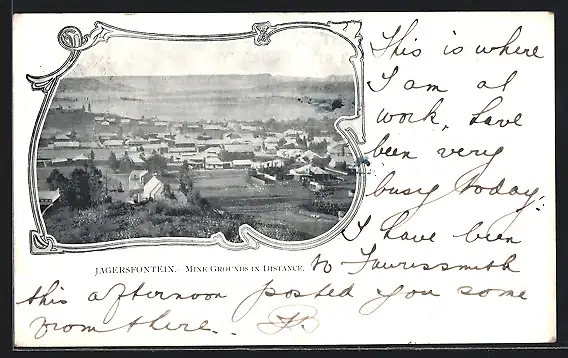 This is where
I am at
work, have
been very
busy today.
I have been
JAGERSFONTEIN. MINE GROUNDS IN DISTANCE.
to Fauresmith
this afternoon posted you some
from there.